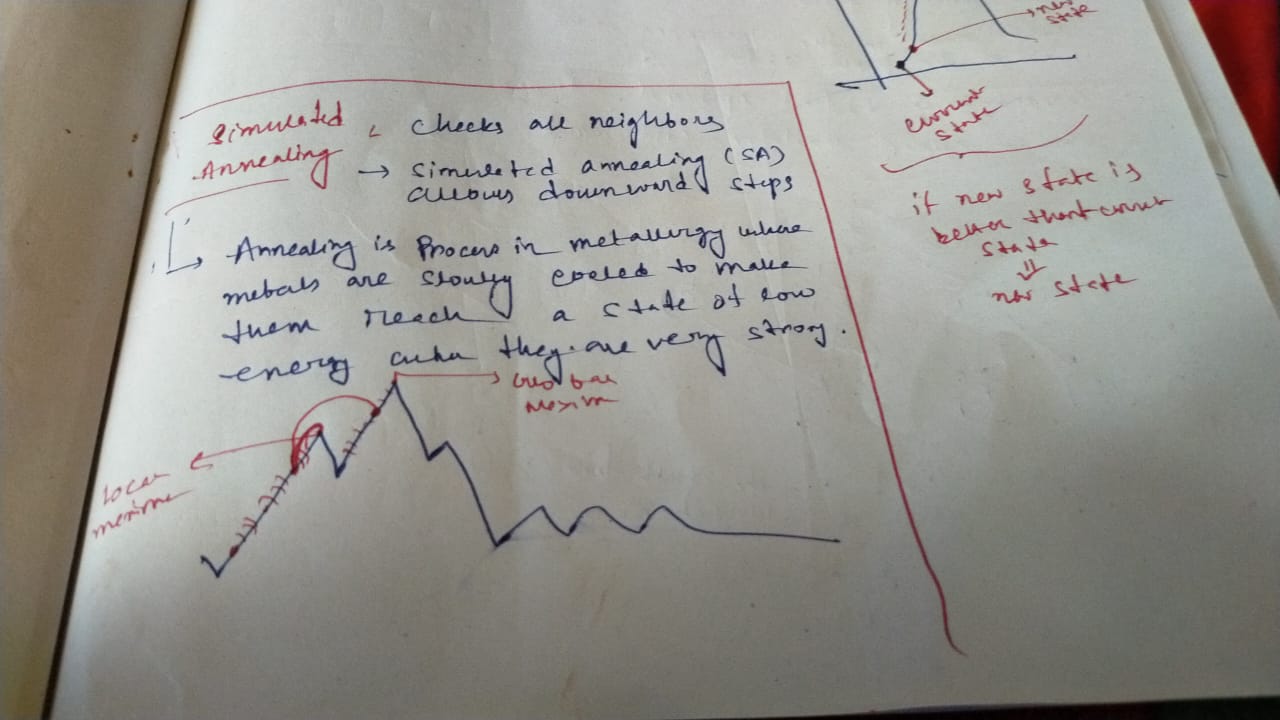 Simulated
Annealing
Checks all neighbors
→ Simulated annealing (SA)
allows downward steps
Annealing is Process in metallurgy where
metals are slowly cooled to make
them reach a state of low
energy they are very strong.
Global
Maxima
Local
new
state
current
state
if new state is
better than
state
⇓
state